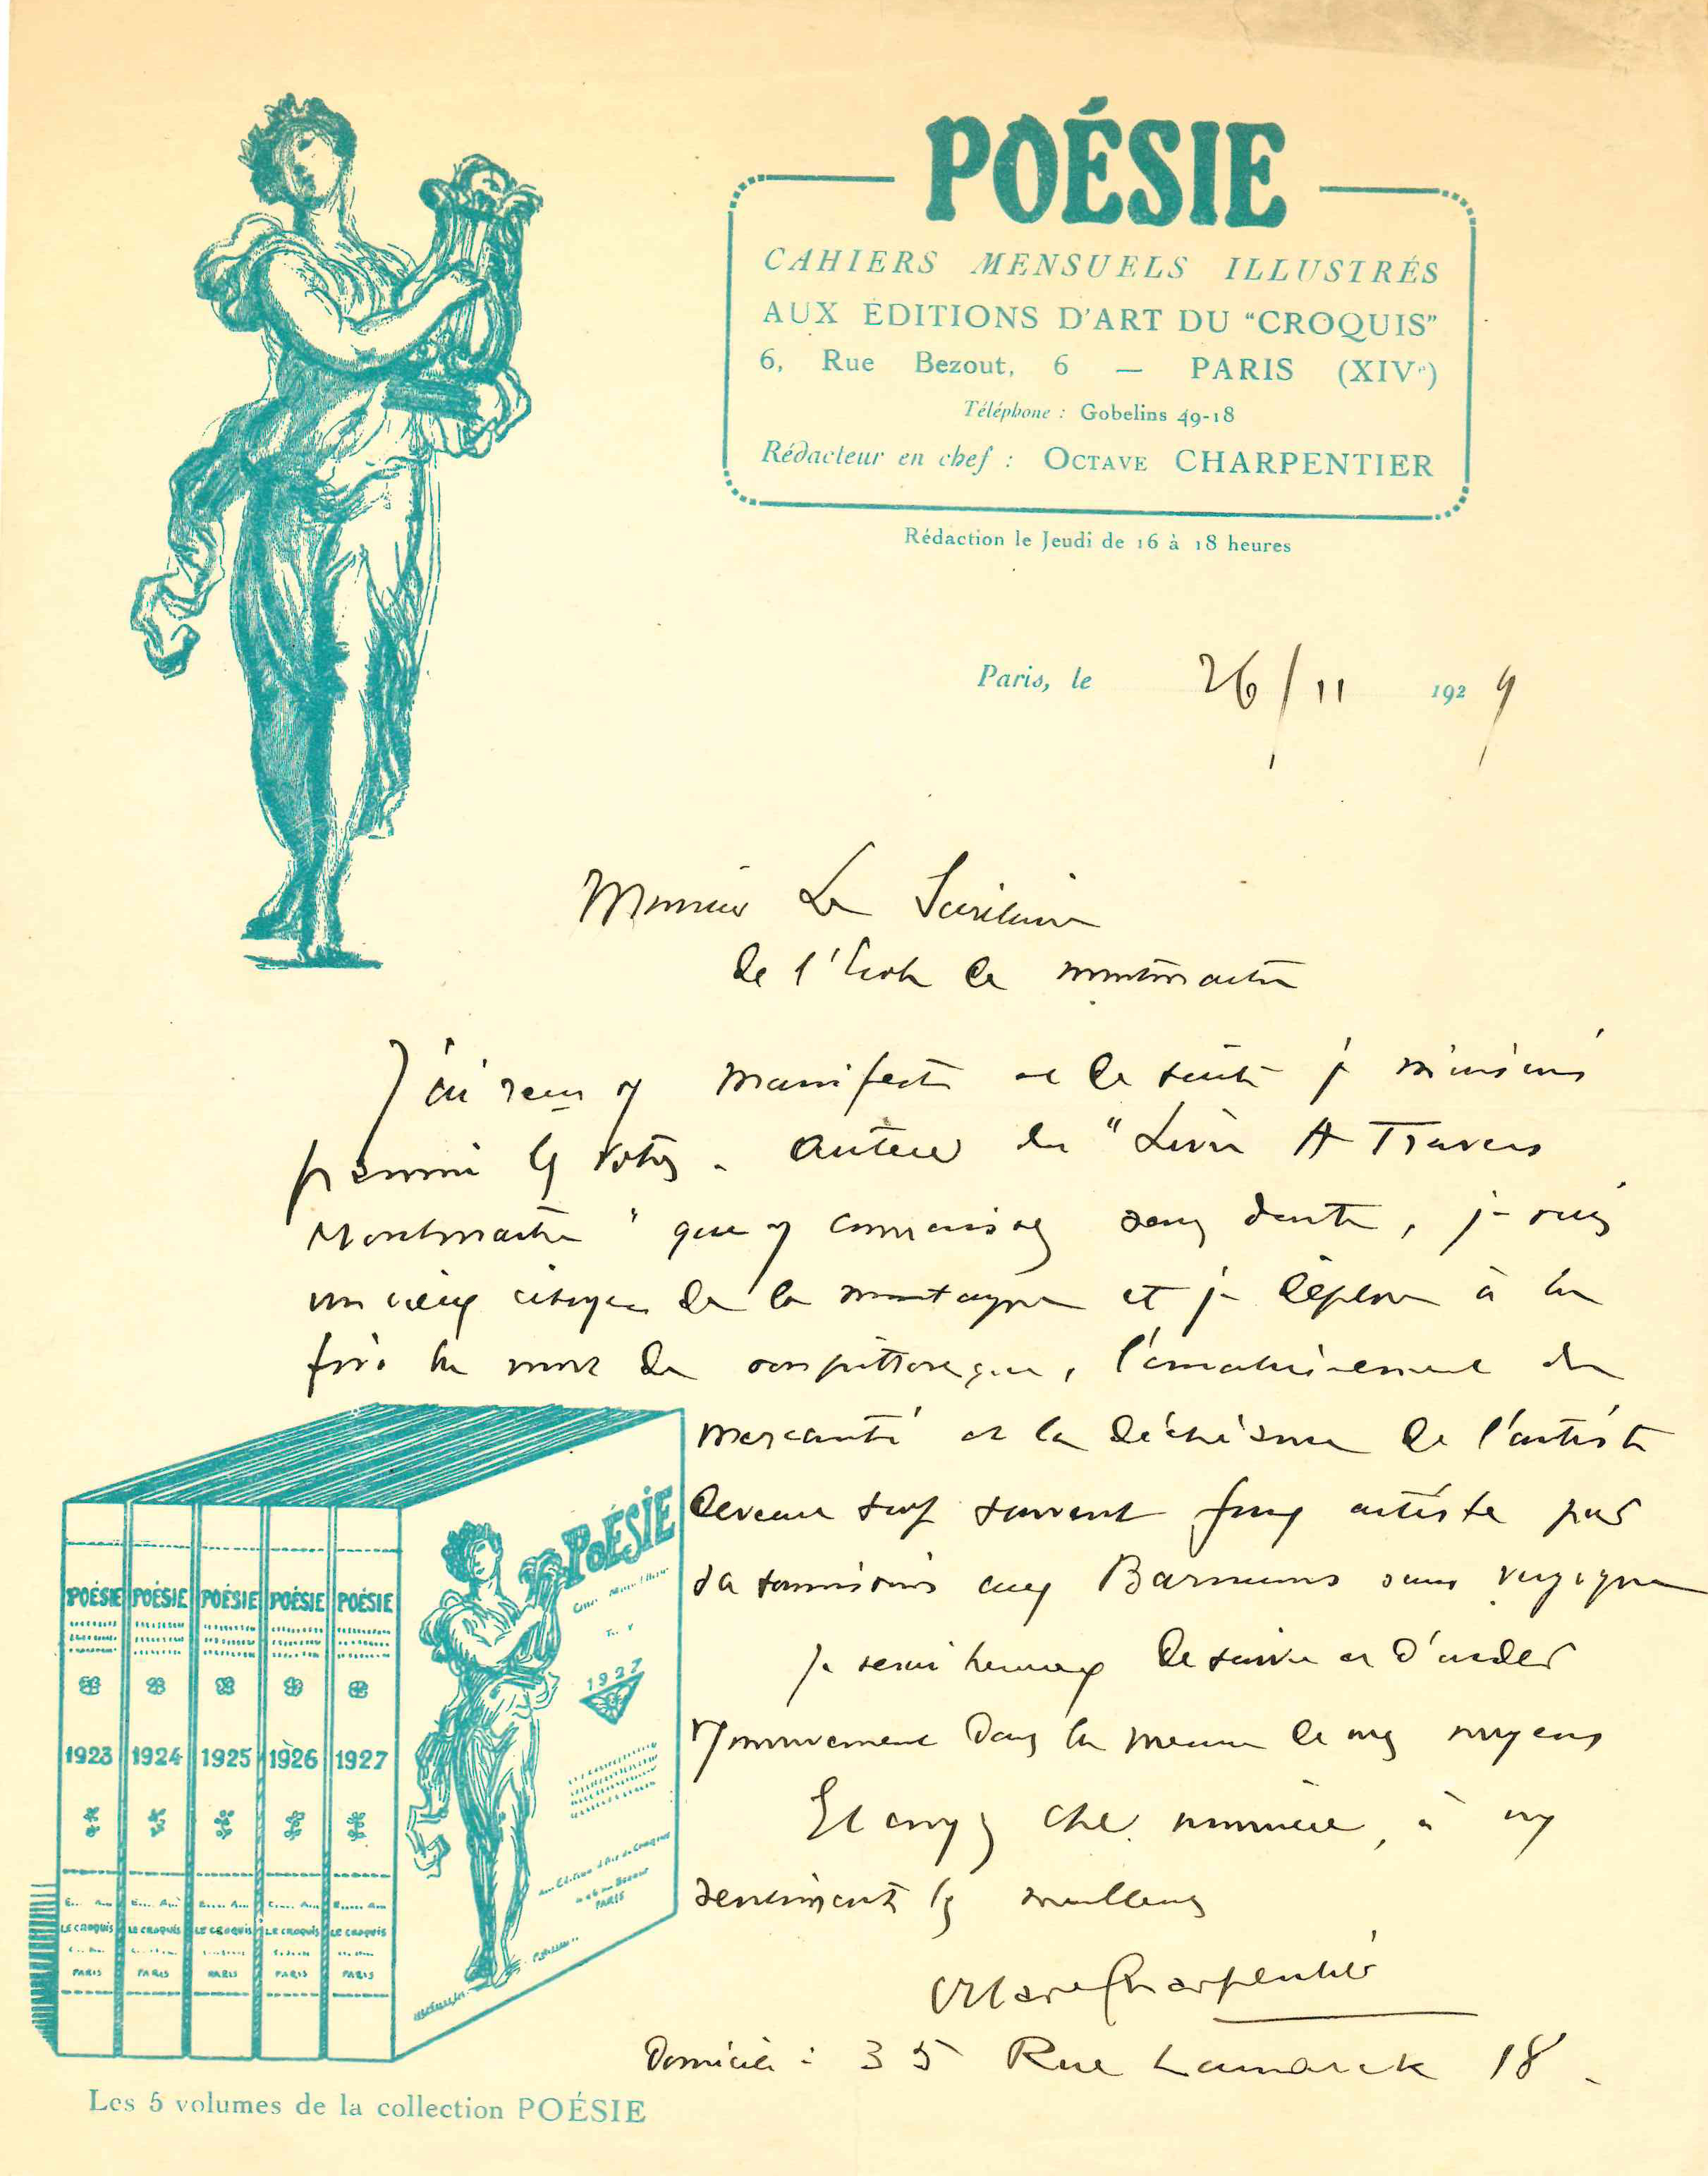 POÉSIE
CAHIERS MENSUELS ILLUSTRÉS
AUX ÉDITIONS D'ART DU "CROQUIS"
6, Rue Bezout, 6 — PARIS (XIVe)
Téléphone : Gobelins 49-18
Rédacteur en chef : OCTAVE CHARPENTIER
Rédaction le Jeudi de 16 à 18 heures
Paris, le 26/11 1929
Monsieur Le Secrétaire
de l'Ecole de Montmartre
J'ai reçu manifeste et de suite je m'inscris
parmi les vôtres. Auteur du "Livre A Travers
Montmartre" que connaissez sans doute, je suis
un vieux citoyen de la montagne et je déplore à la
fois la mort de son pittoresque, l'envahissement du
mercanti et la déchéance de l'artiste
devenu trop souvent faux artiste par
sa soumission aux Barnums sans vergogne
Je serai heureux de suivre et d'aider
mouvement dans la mesure de mes moyens
Et croyez cher monsieur, à mes
sentiments les meilleurs
Octave Charpentier
Domicile : 35 Rue Lamarck 18.
POÉSIE POÉSIE POÉSIE POÉSIE POÉSIE
1923 1924 1925 1926 1927
LE CROQUIS LE CROQUIS LE CROQUIS LE CROQUIS LE CROQUIS
PARIS PARIS PARIS PARIS PARIS
POÉSIE
1927
PARIS
Les 5 volumes de la collection POÉSIE